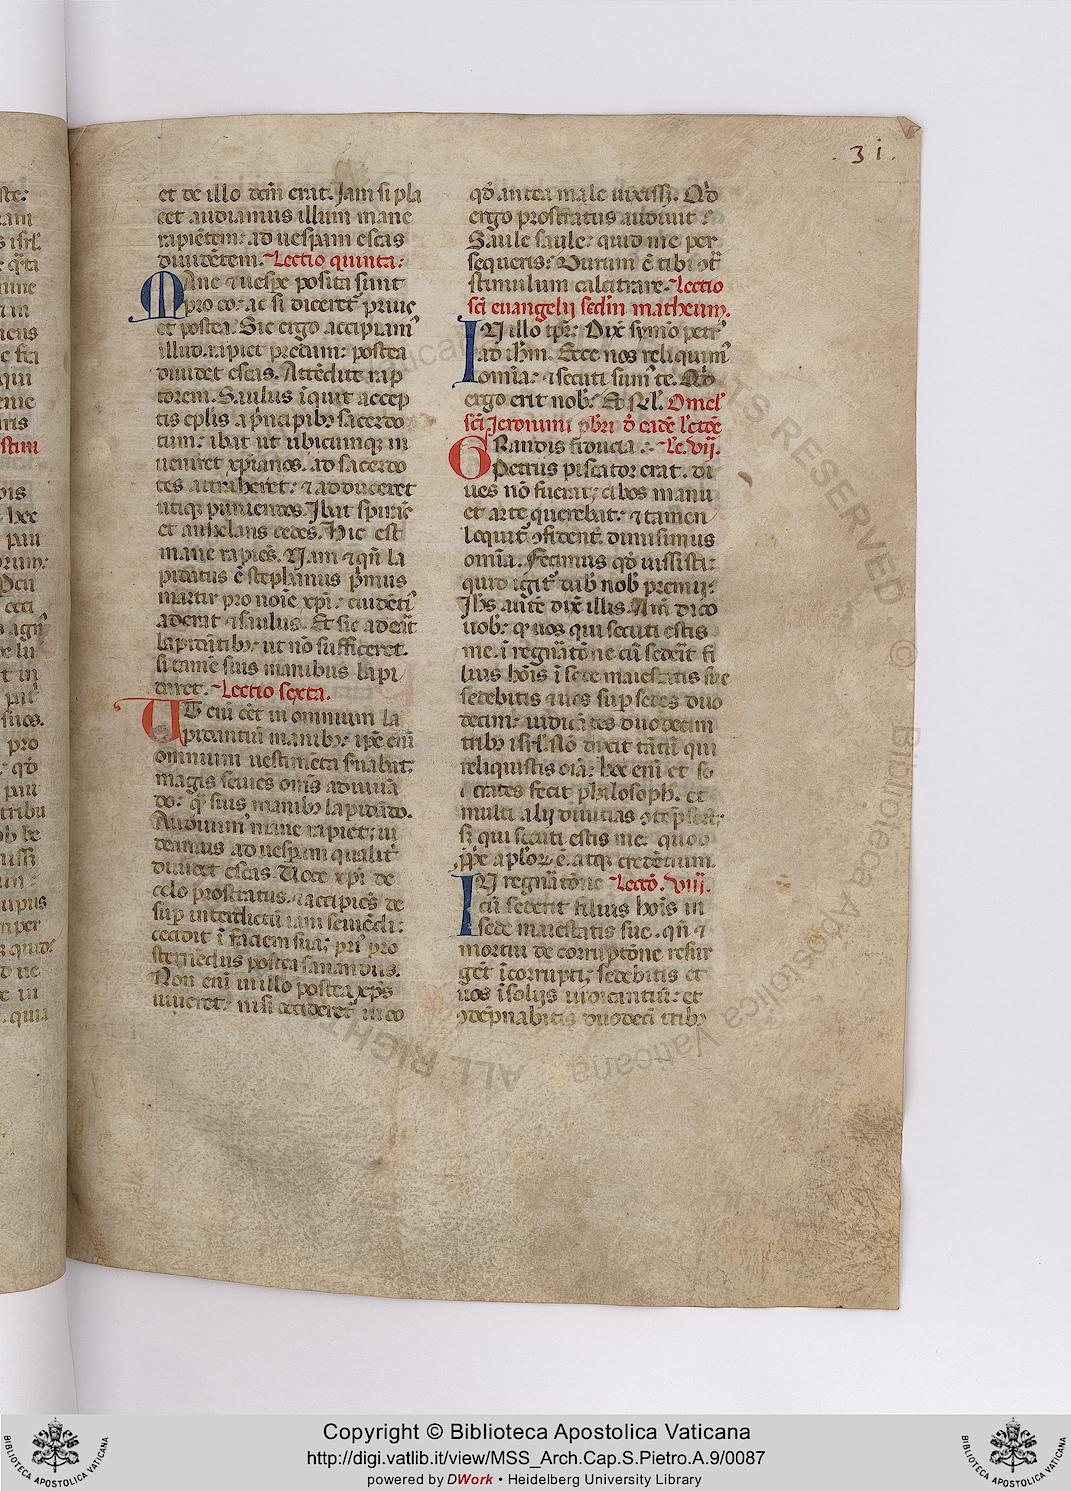 . 3 i .
et de illo dem̃ erit. Jam si pla
cet audiamus illum mane
rapiẽtem: ad uesꝑam escas
diuidẽtem. Lectio quinta:
Mane ⁊ uesꝑe posita sunt
pro eo: ac si diceret᷑ prius
et postea. Sic ergo accipiam᷒
illud. rapiet predam: postea
diuidet escas. Attẽdite rap
torem. Saulus ĩquit accep
tis eplis a p̃ncipibꝫ sacerdo
tum: ibat ut ubicumqꝫ in
ueniret xp̃ianos. ad sacerdo
tes attraheret: ⁊ adduceret
utiqꝫ puniendos. Ibat spirãs
et anhelans cedes. Hic est
mane rapiẽs. Nam ⁊ qñ la
pidatus ẽ stephanus p̃mus
martir pro noĩe xp̃i: euidẽti᷒
aderat ⁊ saulus. Et sic aderãt
lapidãtibꝫ: ut nõ sufficeret.
si tamẽ suis manibus lapi
daret. Lectio sexta.
UT eni᷒ eẽt in omnium la
pidantiũ manibꝫ: ip̃e eni᷒
omnium uestimẽta ẜuabat;
magis seuiẽs oms̃ adiuuã
do: q̃ suis manibꝫ lapidãdo.
Audiuim᷒ mane rapiet: ui
deamus ad uesꝑam qualit᷑
diuidet escas. Uoce xp̃i de
celo prostratus. ⁊ accipiẽs de
suꝑ interdictũ iam seuiẽdi:
cecidit ĩ faciem suã; pri᷒ pro
sternẽdus postea sanandus.
Non eni᷒ in illo postea xp̃s
uiueret: nisi occideret᷑ in eo
qđ antea male uixisset. Qđ
ergo prostratus audiuit:
Saule saule: quid me per
sequeris: Durum ẽ tibi ↄt̃
stimulum calcitrare. Lectio
sc̃i euangelij scđm matheum.
IN illo tp̃r: Dix̃ symõ petr᷒
ad ih̃m. Ecce nos reliquim᷒
omĩa: ⁊ secuti sum᷒ te. Qđ
ergo erit nob̃: Et Rel̃. Omel̃
sc̃i Jeronimi pb̃ri đ eadẽ lectõe
GRandis fiducia: Le. vij.
Petrus piscator erat. di
ues nõ fuerat; cibos manu
et arte querebat: ⁊ tamen
loquit᷑ ↄfident᷑. dimisimus
omĩa. Fecimus qđ iussisti:
quid igit᷑ dab̃ nob̃ premij:
Ih̃s autẽ dix̃ illis. Am̃ dico
uob̃: qꝫ uos qui secuti estis
me. ĩ regñatõne cũ sedeĩt fi
lius hoĩs ĩ sede maiestatis sue
sedebitis ⁊ uos suꝑ sedes duo
decim: iudicãtes duodecim
tribꝫ isrl̃. Nõ dixit tãtũ qui
reliquistis oĩa: hoc eni᷒ et so
crates fecit philosoph᷒. et
multi alij diuitias ↄtẽpsert᷑:
sꝫ qui secuti estis me: quod
ꝓp̃e apl̃oꝝ ẽ. atqꝫ credẽtium.
IN regñatõne Lectõ. viij.
cũ sederit filius hoĩs in
sede maiestatis sue. qñ ⁊
mortui de corruptõne resur
gẽt ĩcorrupti; sedebitis et
uos ĩ solijs iudicantiũ: et
ↄdẽpnabitis duodecĩ tribꝫ
Copyright © Biblioteca Apostolica Vaticana
http://digi.vatlib.it/view/MSS_Arch.Cap.S.Pietro.A.9/0087
powered by DWork • Heidelberg University Library
BIBLIOTECA APOSTOLICA VATICANA
BIBLIOTECA APOSTOLICA VATICANA
ALL RIGHTS RESERVED © Biblioteca Apostolica Vaticana